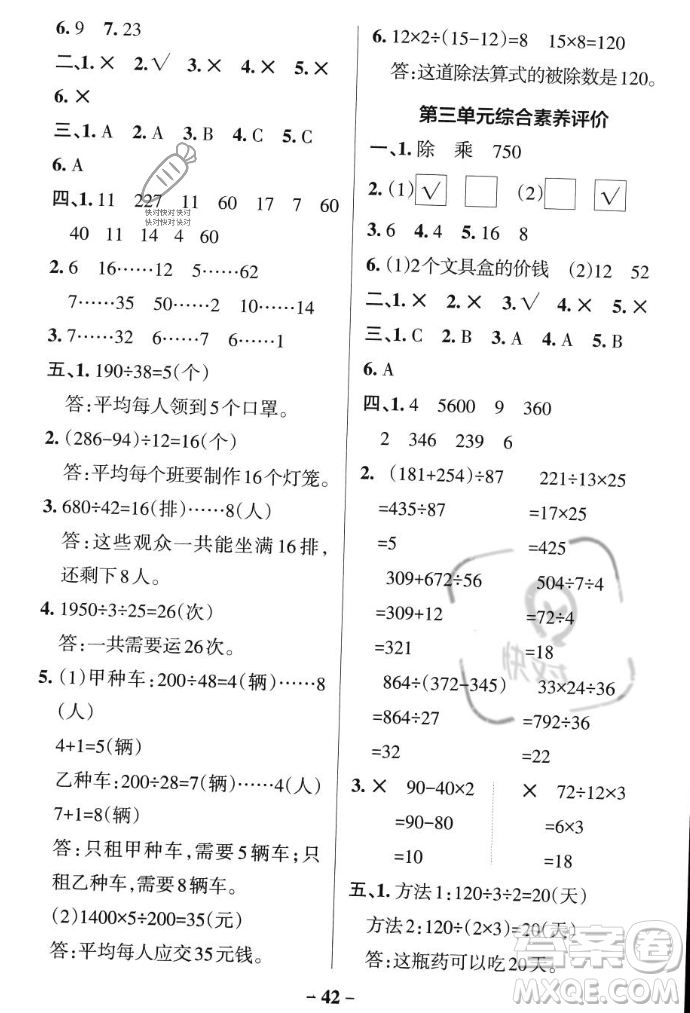 6. 9 7. 23
二、1. × 2. √ 3. × 4. × 5. ×
6. ×
三、1. A 2. A 3. B 4. C 5. C
6. A
四、1. 11 227 11 60 17 7 60
40 11 14 4 60
2. 6 16……12 5……62
7……35 50……2 10……14
3. 7……32 6……7 6……1
五、1. 190÷38=5(个)
答:平均每人领到5个口罩。
2. (286-94)÷12=16(个)
答:平均每个班要制作16个灯笼。
3. 680÷42=16(排)……8(人)
答:这些观众一共能坐满16排,
还剩下8人。
4. 1950÷3÷25=26(次)
答:一共需要运26次。
5. (1)甲种车:200÷48=4(辆)……8
(人)
4+1=5(辆)
乙种车:200÷28=7(辆)……4(人)
7+1=8(辆)
答:只租甲种车,需要5辆车;只
租乙种车,需要8辆车。
(2)1400×5÷200=35(元)
答:平均每人应交35元钱。
6. 12×2÷(15-12)=8 15×8=120
答:这道除法算式的被除数是120。
第三单元综合素养评价
一、1. 除 乘 750
2. (1) √ □ (2) □ √
3. 6 4. 4 5. 16 8
6. (1)2个文具盒的价钱 (2)12 52
二、1. × 2. × 3. √ 4. × 5. ×
三、1. C 2. B 3. A 4. C 5. B
6. A
四、1. 4 5600 9 360
2 346 239 6
2. (181+254)÷87 221÷13×25
=435÷87 =17×25
=5 =425
309+672÷56 504÷7÷4
=309+12 =72÷4
=321 =18
864÷(372-345) 33×24÷36
=864÷27 =792÷36
=32 =22
3. × 90-40×2 × 72÷12×3
=90-80 =6×3
=10 =18
五、1. 方法1:120÷3÷2=20(天)
方法2:120÷(2×3)=20(天)
答:这瓶药可以吃20天。
- 42 -
快对快对快对
快对快对快对
答案圈